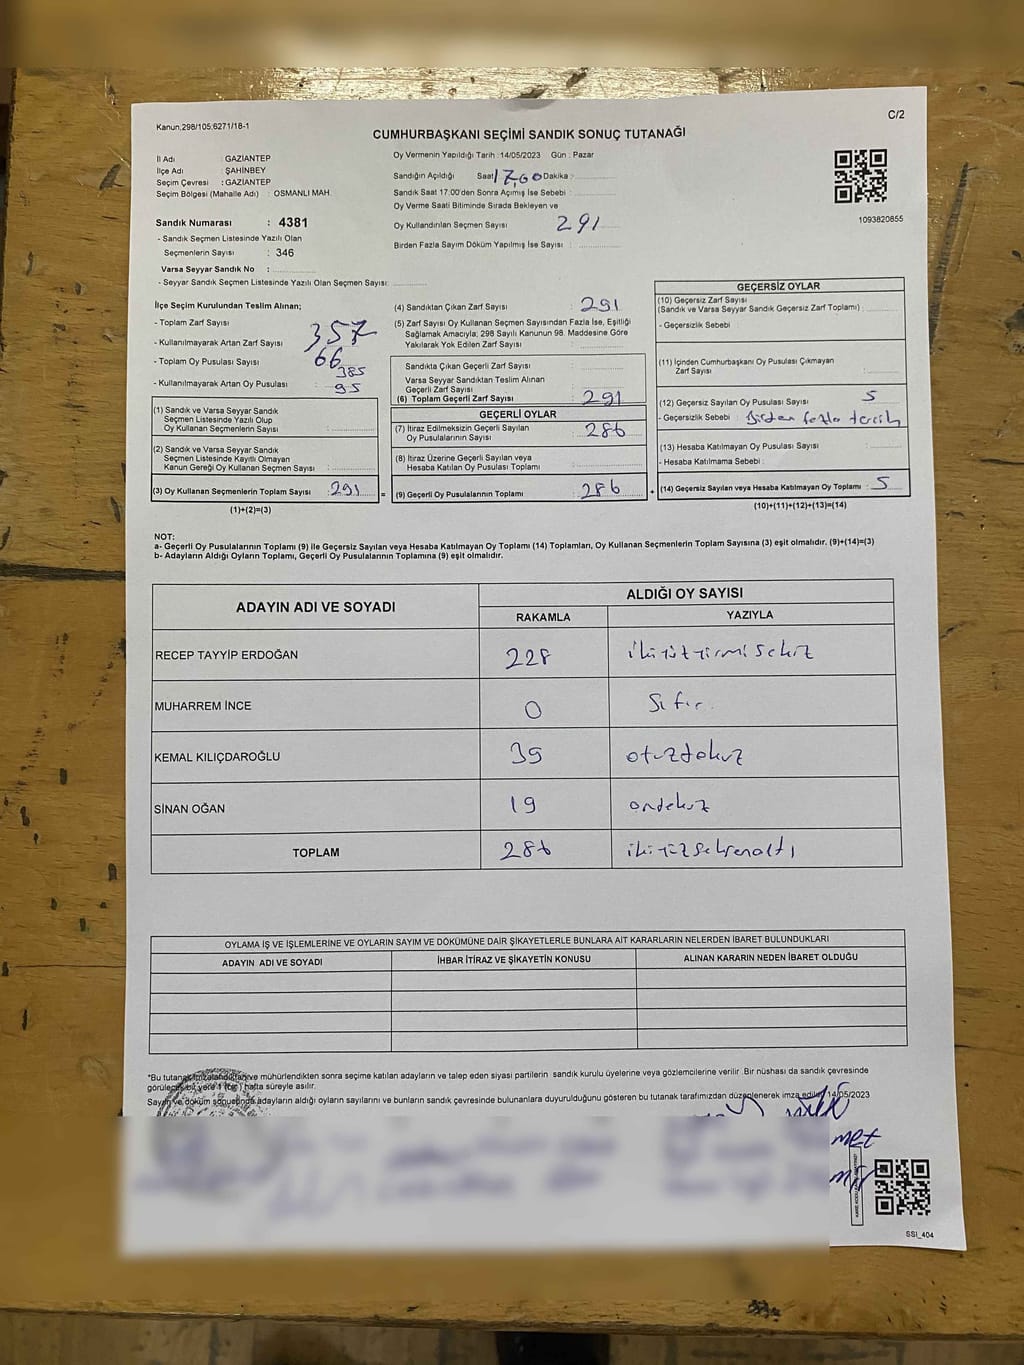 Kanun:298/105;6271/18-1
C/2
CUMHURBAŞKANI SEÇİMİ SANDIK SONUÇ TUTANAĞI
İl Adı : GAZİANTEP
İlçe Adı : ŞAHİNBEY
Seçim Çevresi : GAZİANTEP
Seçim Bölgesi (Mahalle Adı) : OSMANLI MAH.
Sandık Numarası : 4381
- Sandık Seçmen Listesinde Yazılı Olan
Seçmenlerin Sayısı : 346
Varsa Seyyar Sandık No :
- Seyyar Sandık Seçmen Listesinde Yazılı Olan Seçmen Sayısı:
Oy Vermenin Yapıldığı Tarih : 14/05/2023 Gün : Pazar
Sandığın Açıldığı Saat 17,00 Dakika :
Sandık Saat 17.00'den Sonra Açımış İse Sebebi :
Oy Verme Saati Bitiminde Sırada Bekleyen ve
Oy Kullandırılan Seçmen Sayısı 291
Birden Fazla Sayım Döküm Yapılmış İse Sayısı :
1093820855
İlçe Seçim Kurulundan Teslim Alınan;
- Toplam Zarf Sayısı 357
- Kullanılmayarak Artan Zarf Sayısı : 66
- Toplam Oy Pusulası Sayısı : 385
- Kullanılmayarak Artan Oy Pusulası : 95
(1) Sandık ve Varsa Seyyar Sandık
Seçmen Listesinde Yazılı Olup
Oy Kullanan Seçmenlerin Sayısı :
(2) Sandık ve Varsa Seyyar Sandık
Seçmen Listesinde Kayıtlı Olmayan
Kanun Gereği Oy Kullanan Seçmen Sayısı :
(3) Oy Kullanan Seçmenlerin Toplam Sayısı : 291 =
(1)+(2)=(3)
(4) Sandıktan Çıkan Zarf Sayısı : 291
(5) Zarf Sayısı Oy Kullanan Seçmen Sayısından Fazla İse, Eşitliği
Sağlamak Amacıyla; 298 Sayılı Kanunun 98. Maddesine Göre
Yakılarak Yok Edilen Zarf Sayısı :
Sandıkta Çıkan Geçerli Zarf Sayısı :
Varsa Seyyar Sandıktan Teslim Alınan
Geçerli Zarf Sayısı :
(6) Toplam Geçerli Zarf Sayısı : 291
GEÇERLİ OYLAR
(7) İtiraz Edilmeksizin Geçerli Sayılan
Oy Pusulalarının Sayısı : 286
(8) İtiraz Üzerine Geçerli Sayılan veya
Hesaba Katılan Oy Pusulası Toplamı :
(9) Geçerli Oy Pusulalarının Toplamı : 286 +
GEÇERSİZ OYLAR
(10) Geçersiz Zarf Sayısı
(Sandık ve Varsa Seyyar Sandık Geçersiz Zarf Toplamı) :
- Geçersizlik Sebebi :
(11) İçinden Cumhurbaşkanı Oy Pusulası Çıkmayan
Zarf Sayısı :
(12) Geçersiz Sayılan Oy Pusulası Sayısı : 5
- Geçersizlik Sebebi : Birden fazla tercih
(13) Hesaba Katılmayan Oy Pusulası Sayısı :
- Hesaba Katılmama Sebebi :
(14) Geçersiz Sayılan veya Hesaba Katılmayan Oy Toplamı : 5
(10)+(11)+(12)+(13)=(14)
NOT:
a- Geçerli Oy Pusulalarının Toplamı (9) ile Geçersiz Sayılan veya Hesaba Katılmayan Oy Toplamı (14) Toplamları, Oy Kullanan Seçmenlerin Toplam Sayısına (3) eşit olmalıdır. (9)+(14)=(3)
b- Adayların Aldığı Oyların Toplamı, Geçerli Oy Pusulalarının Toplamına (9) eşit olmalıdır.
ADAYIN ADI VE SOYADI
ALDIĞI OY SAYISI
RAKAMLA YAZIYLA
RECEP TAYYİP ERDOĞAN 228 ikiyüzyirmisekiz
MUHARREM İNCE 0 Sıfır.
KEMAL KILIÇDAROĞLU 39 otuzdokuz
SİNAN OĞAN 19 ondokuz
TOPLAM 286 ikiyüzseksenaltı
OYLAMA İŞ VE İŞLEMLERİNE VE OYLARIN SAYIM VE DÖKÜMÜNE DAİR ŞİKAYETLERLE BUNLARA AİT KARARLARIN NELERDEN İBARET BULUNDUKLARI
ADAYIN ADI VE SOYADI İHBAR İTİRAZ VE ŞİKAYETİN KONUSU ALINAN KARARIN NEDEN İBARET OLDUĞU
*Bu tutanak imzalandıktan ve mühürlendikten sonra seçime katılan adayların ve talep eden siyasi partilerin sandık kurulu üyelerine veya gözlemcilerine verilir .Bir nüshası da sandık çevresinde
görülecek bir yere 1 (bir) hafta süreyle asılır.
Sayım ve döküm sonucunda adayların aldığı oyların sayılarını ve bunların sandık çevresinde bulunanlara duyurulduğunu gösteren bu tutanak tarafımızdan düzenlenerek imza edildi. 14/05/2023
met
SSI_404